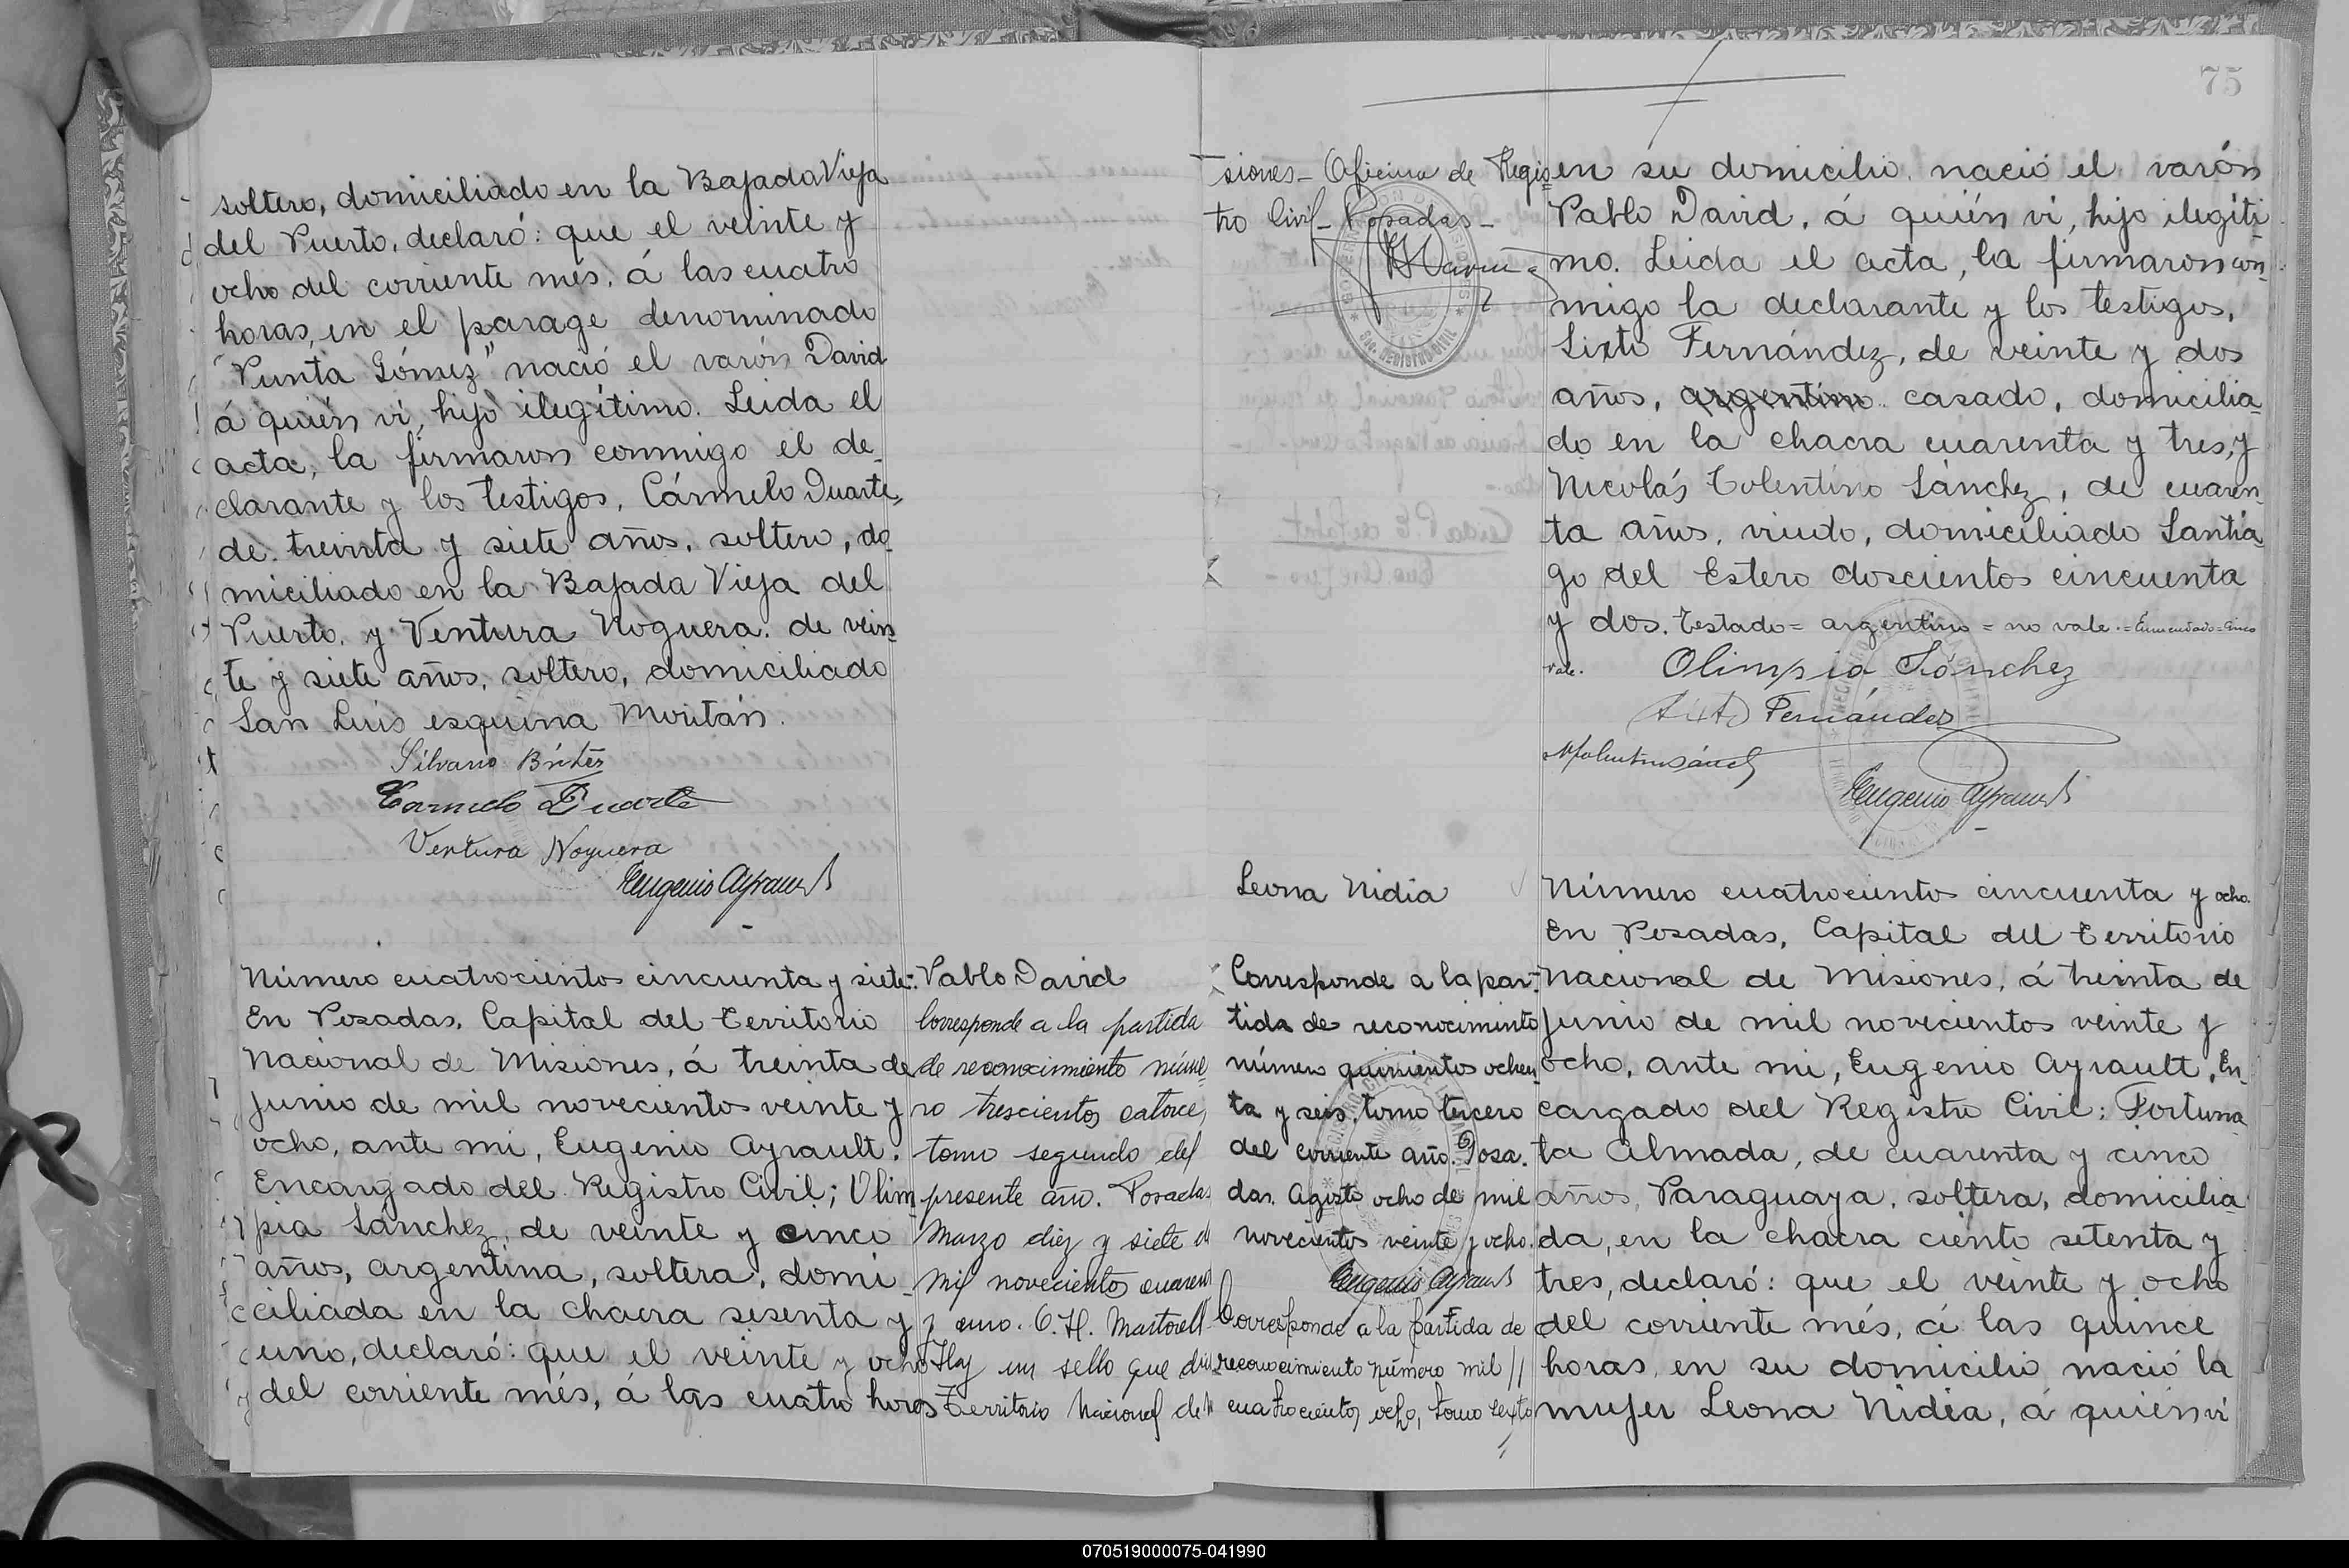 soltero, domiciliado en la Bajada Vieja
del Puerto, declaró: que el veinte y
ocho del corriente més, á las cuatro
horas, en el parage denominado
"Punta Gómez" nació el varón David
á quién ví, hijo ilegítimo. Leida el
acta, la firmaron conmigo el de-
clarante y los testigos, Cármelo Duarte,
de treinta y siete años, soltero, do-
miciliado en la Bajada Vieja del
Puerto, y Ventura Noguera, de vein-
te y siete años, soltero, domiciliado
San Luis esquina Moritán.
Silvano Brítez
Carmelo Duarte
Ventura Noguera
Eugenio Ayrault
Número cuatrociento cincuenta y siete:
En Posadas, Capital del Territorio
Nacional de Misiones, á treinta de
Junio de mil novecientos veinte y
ocho, ante mi, Eugenio Ayrault,
Encargado del Registro Civil; Olim-
pia Sánchez, de veinte y cinco
años, argentina, soltera, domi-
ciliada en la chacra sesenta y
uno, declaró: que el veinte y ocho
del corriente més, á las cuatro horas
Pablo David
Corresponde a la partida
de reconocimiento núme-
ro trescientos catorce,
tomo segundo del
presente año. Posadas
Marzo diez y siete de
mil novecientos cuarent
y uno. O. H. Martorell
Hay un sello que dice
Territorio Nacional de M
75
siones - Oficina de Regis-
tro Civil - Posadas -
en su domicilio, nació el varón
Pablo David, á quién ví, hijo ilegíti-
mo. Leida el acta, la firmaron con-
migo la declarante y los testigos,
Sixto Fernández, de veinte y dos
años, argentino casado, domicilia-
do en la chacra cuarenta y tres, y
Nicolás Tolentino Sánchez, de cuaren-
ta años, viudo, domiciliado Santia-
go del Estero doscientos cincuenta
y dos. Testado = argentino = no vale. = Enmendado = cinco
vale.
Olimpia Sánchez
Sixto Fernández
Eugenio Ayrault
Leona Nidia
Corresponde a la par-
tida de reconocimiento
número quinientos ochen-
ta y seis, tomo tercero
del corriente año. Posa-
das, Agosto ocho de mil
novecientos veinte y ocho.
Eugenio Ayrault
Corresponde a la partida de
reconocimiento número mil //
cuatrocientos ocho, tomo sexto
Número cuatrociento cincuenta y ocho.
En Posadas, Capital del Territorio
Nacional de Misiones, á treinta de
Junio de mil novecientos veinte y
ocho, ante mi, Eugenio Ayrault, En-
cargado del Registro Civil: Fortuna-
ta Almada, de cuarenta y cinco
años, Paraguaya, soltera, domicilia-
da, en la chacra ciento setenta y
tres, declaró: que el veinte y ocho
del corriente més, á las quince
horas, en su domicilio nació la
mujer Leona Nidia, á quién ví
070519000075-041990